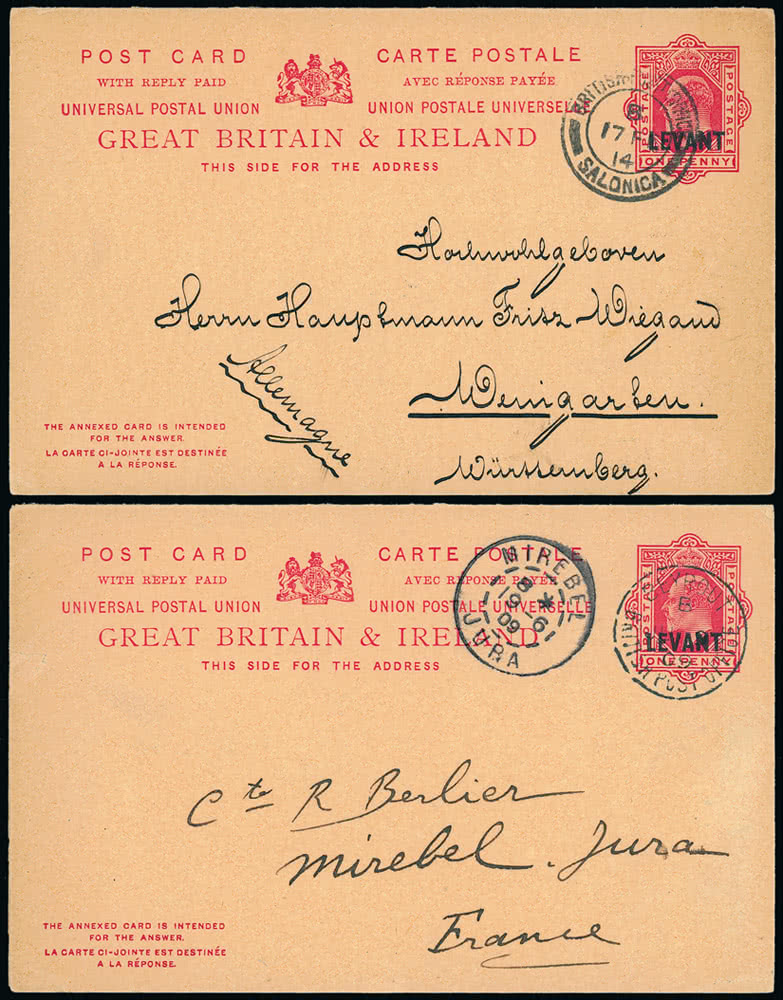 POST CARD
WITH REPLY PAID
CARTE POSTALE
AVEC RÉPONSE PAYÉE
UNIVERSAL POSTAL UNION
UNION POSTALE UNIVERSELLE
GREAT BRITAIN & IRELAND
THIS SIDE FOR THE ADDRESS
POSTAGE
POSTAGE
LEVANT
ONE PENNY
BRITISH
17 F
14
SALONICA
Hochwohlgeboren
Herrn Hauptmann Fritz Wiegand
Weingarten.
Württemberg.
Allemagne
THE ANNEXED CARD IS INTENDED
FOR THE ANSWER.
LA CARTE CI-JOINTE EST DESTINÉE
A LA RÉPONSE.
POST CARD
WITH REPLY PAID
CARTE POSTALE
AVEC RÉPONSE PAYÉE
UNIVERSAL POSTAL UNION
UNION POSTALE UNIVERSELLE
GREAT BRITAIN & IRELAND
THIS SIDE FOR THE ADDRESS
MIREBEL
JURA
POSTAGE
POSTAGE
LEVANT
ONE PENNY
BEYROUT
BRITISH POST OFFICE
Cte R Berlier
Mirebel. Jura
France
THE ANNEXED CARD IS INTENDED
FOR THE ANSWER.
LA CARTE CI-JOINTE EST DESTINÉE
A LA RÉPONSE.